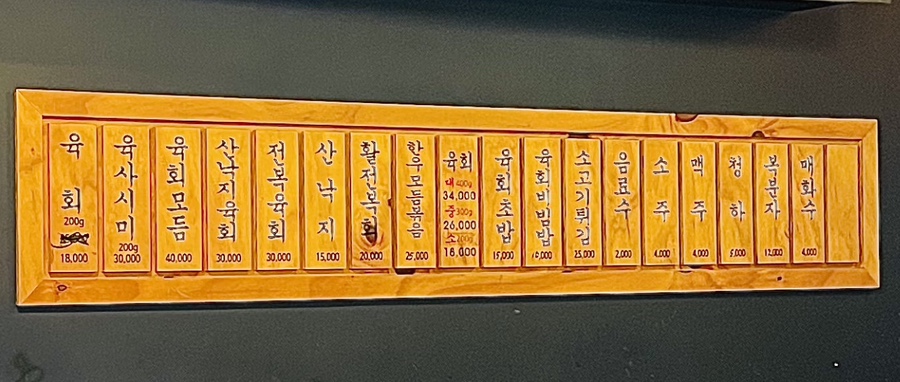 육회
200g
18,000
육사시미
200g
30,000
육회모듬
40,000
산낙지육회
30,000
전복육회
30,000
산낙지
15,000
활전복회
20,000
한우모듬볶음
25,000
육회
대 400g
34,000
중 300g
26,000
소 200g
18,000
육회초밥
15,000
육회비빔밥
소고기튀김
25,000
음료수
2,000
소주
4,000
맥주
4,000
청하
5,000
복분자
12,000
매화수
4,000